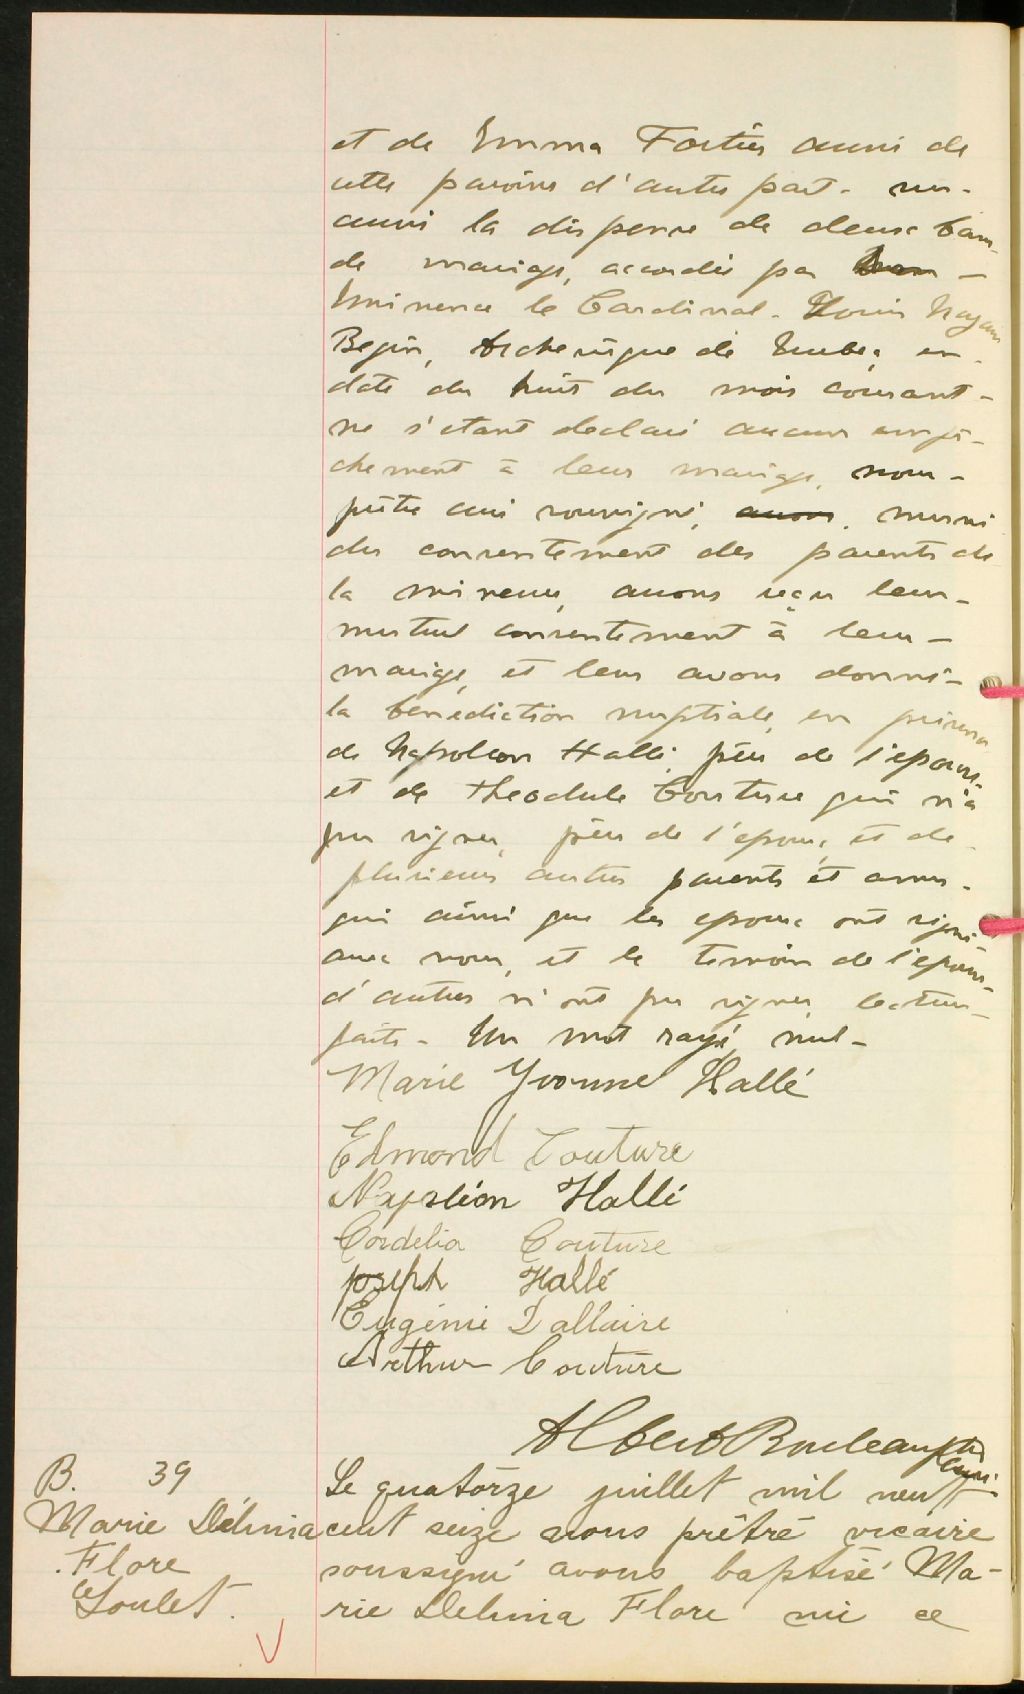 et de Emma Fortier aussi de
cette paroisse d'autre part. vu-
aussi la dispense de deux bans
de mariage, accordée par son -
Eminence le Cardinal. Louis Nazaire
Begin, Archevêque de Quebec, en-
date du huit du mois courant-
ne s'etant declaré aucun empê-
chement à leur mariage, nous-
prêtre curé soussigné, avons, muni
du consentement des parents de
la mineure, avons reçu leur-
mutuel consentement à leur-
mariage, et leur avons donné-
la benediction nuptiale, en présence
de Napoleon Hallé, père de l'epouse,
et de Theodule Couture qui n'a
pu signer, père de l'epoux, et de
plusieurs autres parents et amis-
qui ainsi que les epoux ont signé
avec nous, et le temoin de l'epoux-
d'autres n'ont pu signer, lecture-
faite - Un mot rayé nul-
Marie Yvonne Hallé
Edmond Couture
Napoléon Hallé
Cordelia Couture
Joseph Hallé
Eugénie Dallaire
Arthur Couture
Albert Rouleau ptre
curé.
B. 39
Marie Délima
Flore
Goulet.
Le quatorze juillet mil neuf
cent seize nous prêtre vicaire
soussigné avons baptisé Ma-
rie Delima Flore née ce